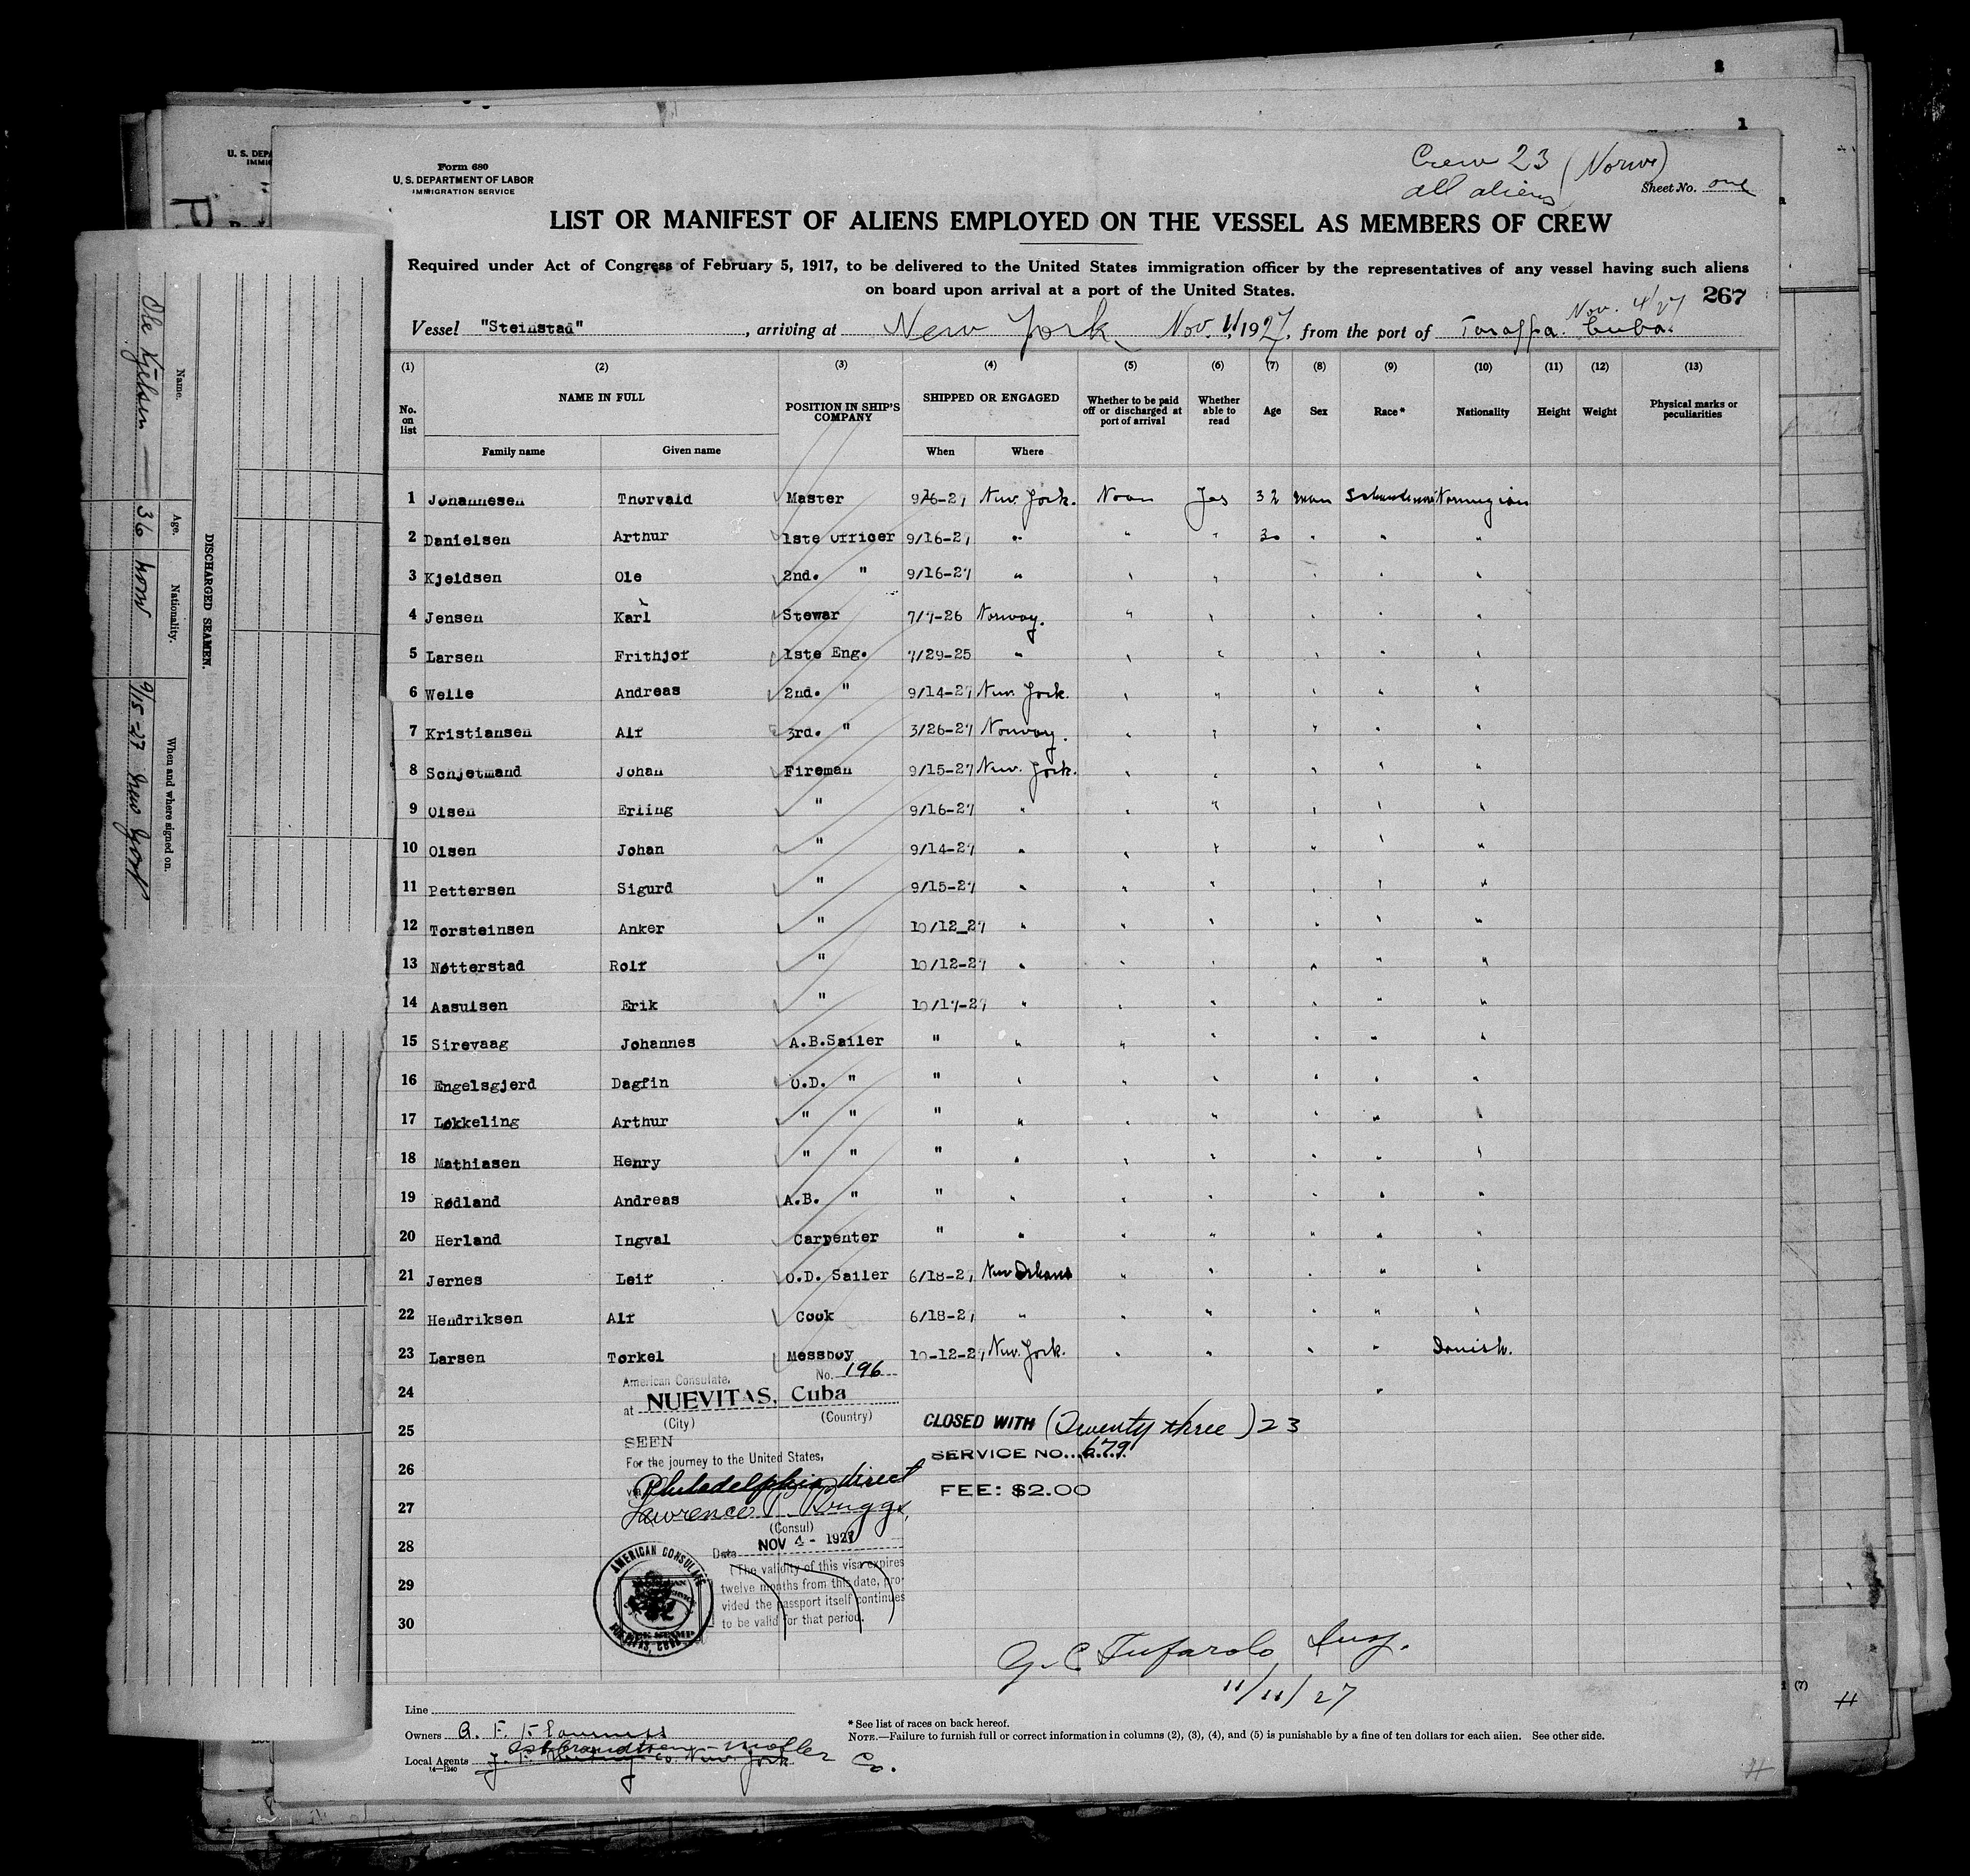 Form 680
U. S. DEPARTMENT OF LABOR
IMMIGRATION SERVICE
Crew 23 (Norw)
all aliens
Sheet No. one
LIST OR MANIFEST OF ALIENS EMPLOYED ON THE VESSEL AS MEMBERS OF CREW
Required under Act of Congress of February 5, 1917, to be delivered to the United States immigration officer by the representatives of any vessel having such aliens
on board upon arrival at a port of the United States.
267
Nov. 4/27
Vessel "Steinstad", arriving at New York Nov. 11, 1927, from the port of Tarafpa. Cuba.
(1) (2) (3) (4) (5) (6) (7) (8) (9) (10) (11) (12) (13)
No. on list NAME IN FULL POSITION IN SHIP'S COMPANY SHIPPED OR ENGAGED Whether to be paid off or discharged at port of arrival Whether able to read Age Sex Race* Nationality Height Weight Physical marks or peculiarities
Family name Given name When Where
1 Johannesen Thorvald Master 9/6-27 New York. Noon Jes 32 man Norwegian
2 Danielsen Arthur 1ste Officer 9/16-27 " " " 30 " " "
3 Kjeldsen Ole 2nd. " 9/16-27 " " " " " "
4 Jensen Karl Stewar 7/7-26 Norway. " " " " "
5 Larsen Frithjof 1ste Eng. 7/29-25 " " " " " "
6 Welle Andreas 2nd. " 9/14-27 New York. " " " " "
7 Kristiansen Alf 3rd. " 3/26-27 Norway. " " " " "
8 Schjetmand Johan Fireman 9/15-27 New York. " " " " "
9 Olsen Erling " 9/16-27 " " " " " "
10 Olsen Johan " 9/14-27 " " " " " "
11 Pettersen Sigurd " 9/15-27 " " " " " "
12 Torsteinsen Anker " 10/12_27 " " " " " "
13 Nøtterstad Rolf " 10/12-27 " " " " " "
14 Aasulsen Erik " 10/17-27 " " " " " "
15 Sirevaag Johannes A.B.Sailer " " " " " " "
16 Engelsgjerd Dagfin O.D. " " " " " " " "
17 Løkkeling Arthur " " " " " " " " "
18 Mathiasen Henry " " " " " " " " "
19 Rødland Andreas A.B. " " " " " " " "
20 Herland Ingval Carpenter " " " " " " "
21 Jernes Leif O.D. Sailer 6/18-27 New Orleans " " " " "
22 Hendriksen Alf Cook 6/18-27 " " " " " "
23 Larsen Torkel Messboy 10-12-27 New York. " " " " Danish.
24
25
26
27
28
29
30
American Consulate, No. 196
at NUEVITAS, Cuba
(City) (Country)
SEEN
For the journey to the United States,
via Philadelphia direct
Lawrence P. Briggs,
(Consul)
Date NOV 4 - 1927
(The validity of this visa expires
twelve months from this date, pro-
vided the passport itself continues
to be valid for that period.
AMERICAN CONSULATE
CLOSED WITH (Twenty three) 23
SERVICE NO. 679
FEE: $2.00
G. C. Tufarolo Insp.
11/11/27
Line
Owners
Local Agents New York Moller Co.
14—1240
* See list of races on back hereof.
NOTE.—Failure to furnish full or correct information in columns (2), (3), (4), and (5) is punishable by a fine of ten dollars for each alien. See other side.
DISCHARGED SEAMEN.
Name. Age. Nationality. When and where signed on.
Ole Kjelsen 36 Norw 9/15-27 New York
U. S. DEPA
IMMIG
(7)
1